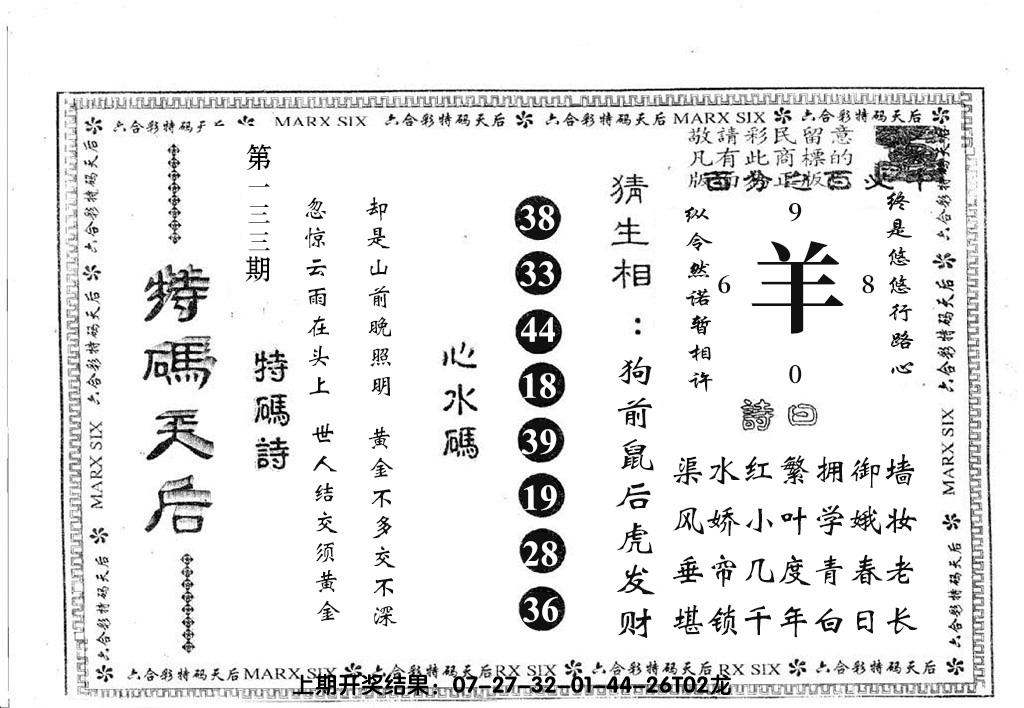 六合彩特码天后 MARX SIX 六合彩特码天后 六合彩特码天后 MARX SIX 六合彩特码天后
敬請彩民留意
凡有此商標的
版面为正版
終是悠悠行路心
9
6 羊 8
0
纵令然诺暂相许
詩曰
渠水红繁拥御墙
风娇小叶学娥妆
垂帘几度青春老
堪锁千年白日长
猜生相：狗前鼠后虎发财
38
33
44
18
39
19
28
36
心水碼
却是山前晚照明 黄金不多交不深
忽惊云雨在头上 世人结交须黄金
特碼詩
第一三三期
特碼天后
六合彩特码天后 六合彩特码天后 MARX SIX 六合彩特码天后
六合彩特码天后 六合彩特码天后 MARX SIX 六合彩特码天后
六合彩特码天后 MARX SIX 六合彩特码天后 RX SIX 六合彩特码天后 RX SIX 六合彩特码天后
上期开奖结果：07-27-32-01-44-26T02龙